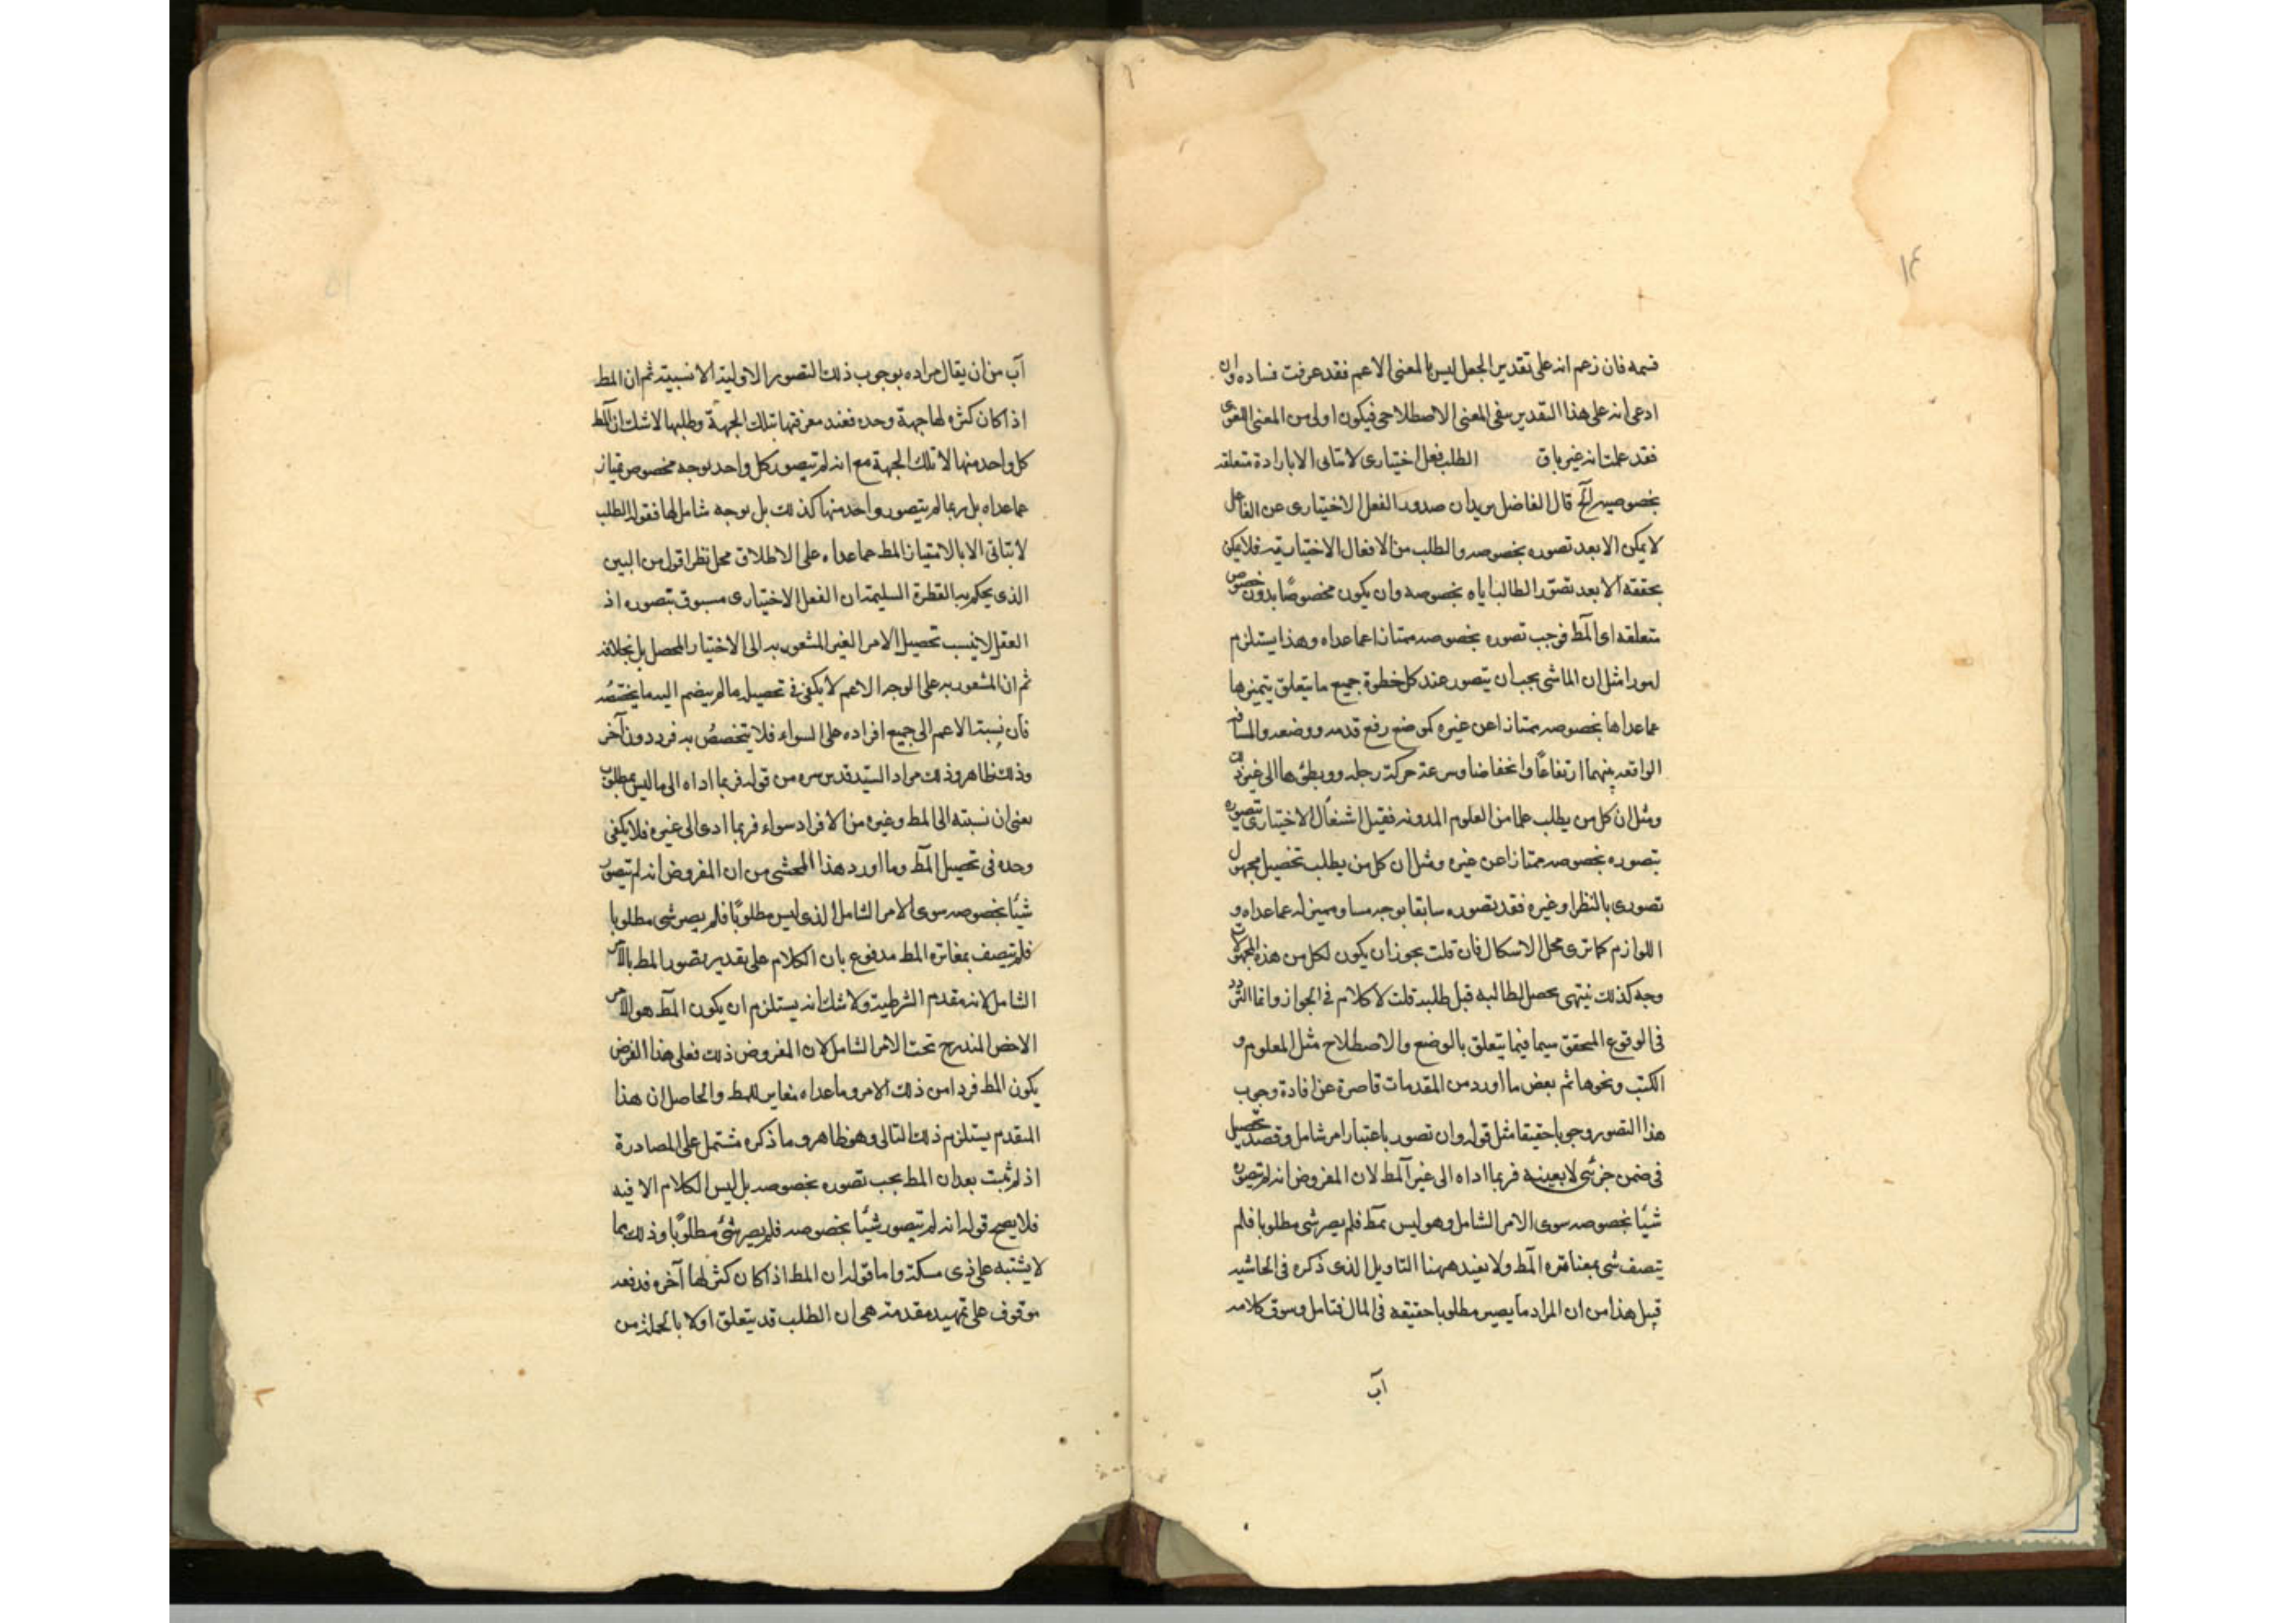 ١٤
قسمه فان زعم انه على تقدير الجعل ليس بالمعنى الاعم فقد عرفت فساده وان
ادعى انه على هذا التقدير يبقى المعنى الاصطلاحى فيكون اولى من المعنى اللغوى
فقد علمت انه غير باق الطلب فعل اختيارى لا يتاتى الا بارادة متعلقه
بخصوصيه الخ قال الفاضل يريد ان صدور الفعل الاختيارى عن الفاعل
لا يمكن الا بعد تصوره بخصوصه والطلب من الافعال الاختياريه فلا يمكن
تحققه الا بعد تصوّر الطالب اياه بخصوصه وان يكون مخصوصًا بدون خصوص
متعلقه اى المط فوجب تصوره بخصوصه ممتازا عما عداه وهذا يستلزم
امورا مثل ان الماشى يجب ان يتصور عند كل خطوة جميع ما يتعلق بتميزها
عما عداها بخصوصه ممتازا عن غيره كموضع رفع قدمه ووضعه والمسافه
الواقعه بينهما ارتفاعًا وانخفاضا وسرعة حركة رجله وبطئها الى غير ذلك
ومثل ان كل من يطلب علما من العلوم المدونه فقبل اشتغال الاختيارى بتصوره
يتصوره بخصوصه ممتازا عن غيره ومثل ان كل من يطلب تحصيل مجهول
تصورى بالنظر او غيره فقد تصوره سابقا بوجه مساو مميز له عما عداه و
اللوازم كما ترى محل الاشكال فان قلت يجوز ان يكون لكل من هذه المجهولات
وجه كذلك ينتهى تحصل لطالبه قبل طلبه قلت لا كلام فى الجواز وانما التردد
فى الوقوع المحقق سيما فيما يتعلق بالوضع والاصطلاح مثل المعلوم و
الكتب ونحوها ثم بعض ما اورد من المقدمات قاصرة عن افادة وجوب
هذا التصور وجوبا حقيقا مثل قوله وان تصور باعتبار امر شامل وقصد تحصيل
فى ضمن جزئى لا بعينه فربما اداه الى غير المط لان المفروض انه لم يتصور
شيئا بخصوصه سوى الامر الشامل وهو ليس بمط فلم يصر شى مطلوبا فلم
يتصف شى بمغايرة المط ولا يفيد ههنا التاويل الذى ذكره فى الحاشيه
قبيل هذا من ان المراد ما يصير مطلوبا حقيقه فى المال فتامل وسوق كلامه
آب
آب من ان يقال مراده بوجوب ذلك التصور الاولية الانسبية ثم ان المط
اذا كان كثره لها جهة وحده فعند معرفتها بتلك الجهة وطلبها لا شك ان المط
كل واحد منها لا تلك الجهة مع انه لم يتصور كل واحد بوجه مخصوص يمتاز
عما عداه بل ربما لم يتصور واحد منها كذلك بل بوجه شامل لها فقوله الطلب
لا يتاتى الا بالامتياز المط عما عداه على الاطلاق محل نظر اقول من البين
الذى يحكم به الفطرة السليمة ان الفعل الاختيارى مسبوق بتصوره اذ
العقل لا ينسب تحصيل الامر الغير المشعور به الى الاختيار المحصل بل بخلافه
ثم ان المشعور به على الوجه الاعم لا يكفى فى تحصيله ما لم ينضم اليه ما يختصه
فان نسبة الاعم الى جميع افراده على السواء فلا يتخصصُ به فرد دون آخر
وذلك ظاهر وذلك مراد السيد قدس سره من قوله فربما اداه الى ما ليس بمطلوب
يعنى ان نسبته الى المط وغيره من الافراد سواء فربما ادى الى غيره فلا يكفى
وحده فى تحصيل المط وما اورد هذا المحشى من ان المفروض انه لم يتصور
شيئا بخصوصه سوى الامر الشامل الذى ليس مطلوبًا فلم يصر شى مطلوبا
فلم يتصف بمغايرة المط مدفوع بان الكلام على تقدير تصور المط بالامر
الشامل لانه مقدم الشرطية ولا شك انه يستلزم ان يكون المط هو الامر
الاخص المندرج تحت الامر الشامل لان المفروض ذلك فعلى هذا الفرض
يكون المط فردا من ذلك الامر وما عداه مغاير للمط والحاصل ان هذا
المقدم يستلزم ذلك التالى وهو ظاهر وما ذكره مشتمل على المصادرة
اذ لم يثبت بعد ان المط يجب تصوره بخصوصه بل ليس الكلام الا فيه
فلا يصح قوله انه لم يتصور شيئا بخصوصه فلم يصر شئ مطلوبًا وذلك مما
لا يشتبه على ذى مسكة واما قوله ان المط اذا كان كثره لها آخره فدفعه
موقوف على تمهيد مقدمة هى ان الطلب قد يتعلق اولا بالجملة من